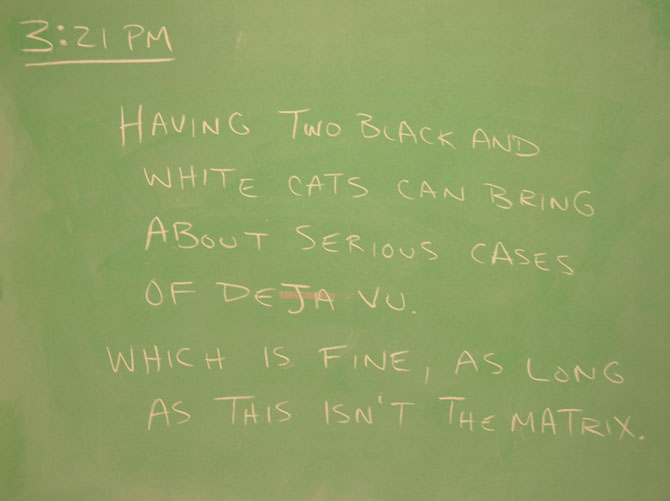 3:21 PM
HAVING TWO BLACK AND
WHITE CATS CAN BRING
ABOUT SERIOUS CASES
OF DEJA VU.
WHICH IS FINE, AS LONG
AS THIS ISN'T THE MATRIX.